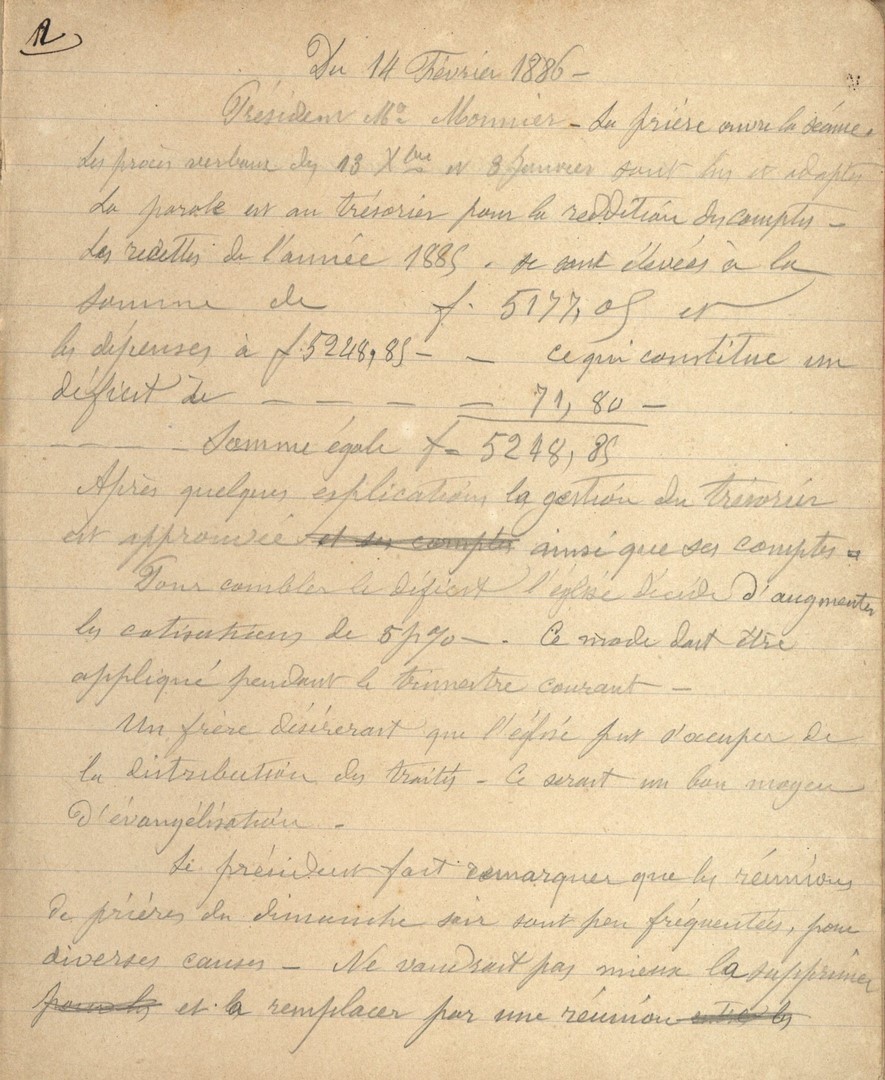 12
Du 14 Février 1886 -
Président Mr Monnier - La prière ouvre la séance.
Les procès verbaux des 13 Xbre et 3 Janvier sont lus et adoptés
La parole est au trésorier pour la reddition des comptes -
Les recettes de l'année 1885. se sont élevées à la
somme de f. 5177,05 et
les dépenses à f. 5248,85 - - ce qui constitue un
déficit de - - - - 71,80 -
- - - Somme égale f = 5248,85
Après quelques explications la gestion du trésorier
est approuvée et ses comptes ainsi que ses comptes -
Pour combler le déficit l'église décide d'augmenter
les cotisations de 5 p% -. Ce mode doit être
appliqué pendant le trimestre courant -
Un frère désirerait que l'église put s'occuper de
la distribution des traités - Ce serait un bon moyen
d'évangélisation -
Le président fait remarquer que les réunions
de prières du dimanche soir sont peu fréquentées, pour
diverses causes - Ne vaudrait pas mieux la supprimer
pour les et la remplacer par une réunion entre les